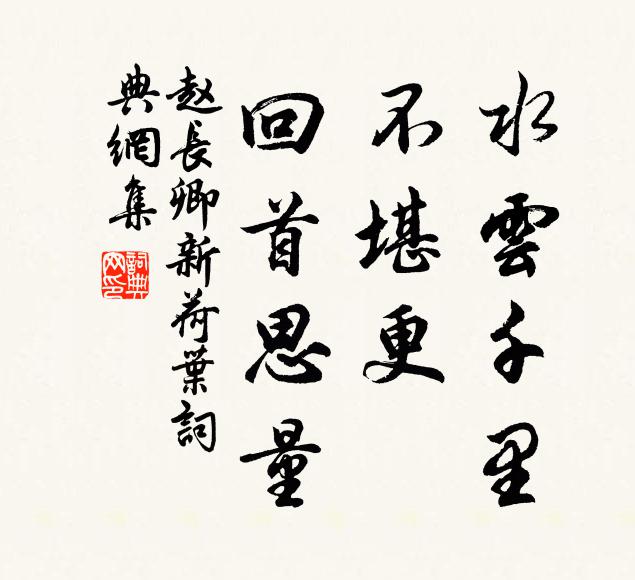 水雲千里
不堪更
回首思量
赵長卿新荷葉詞
典網集
詞典網印